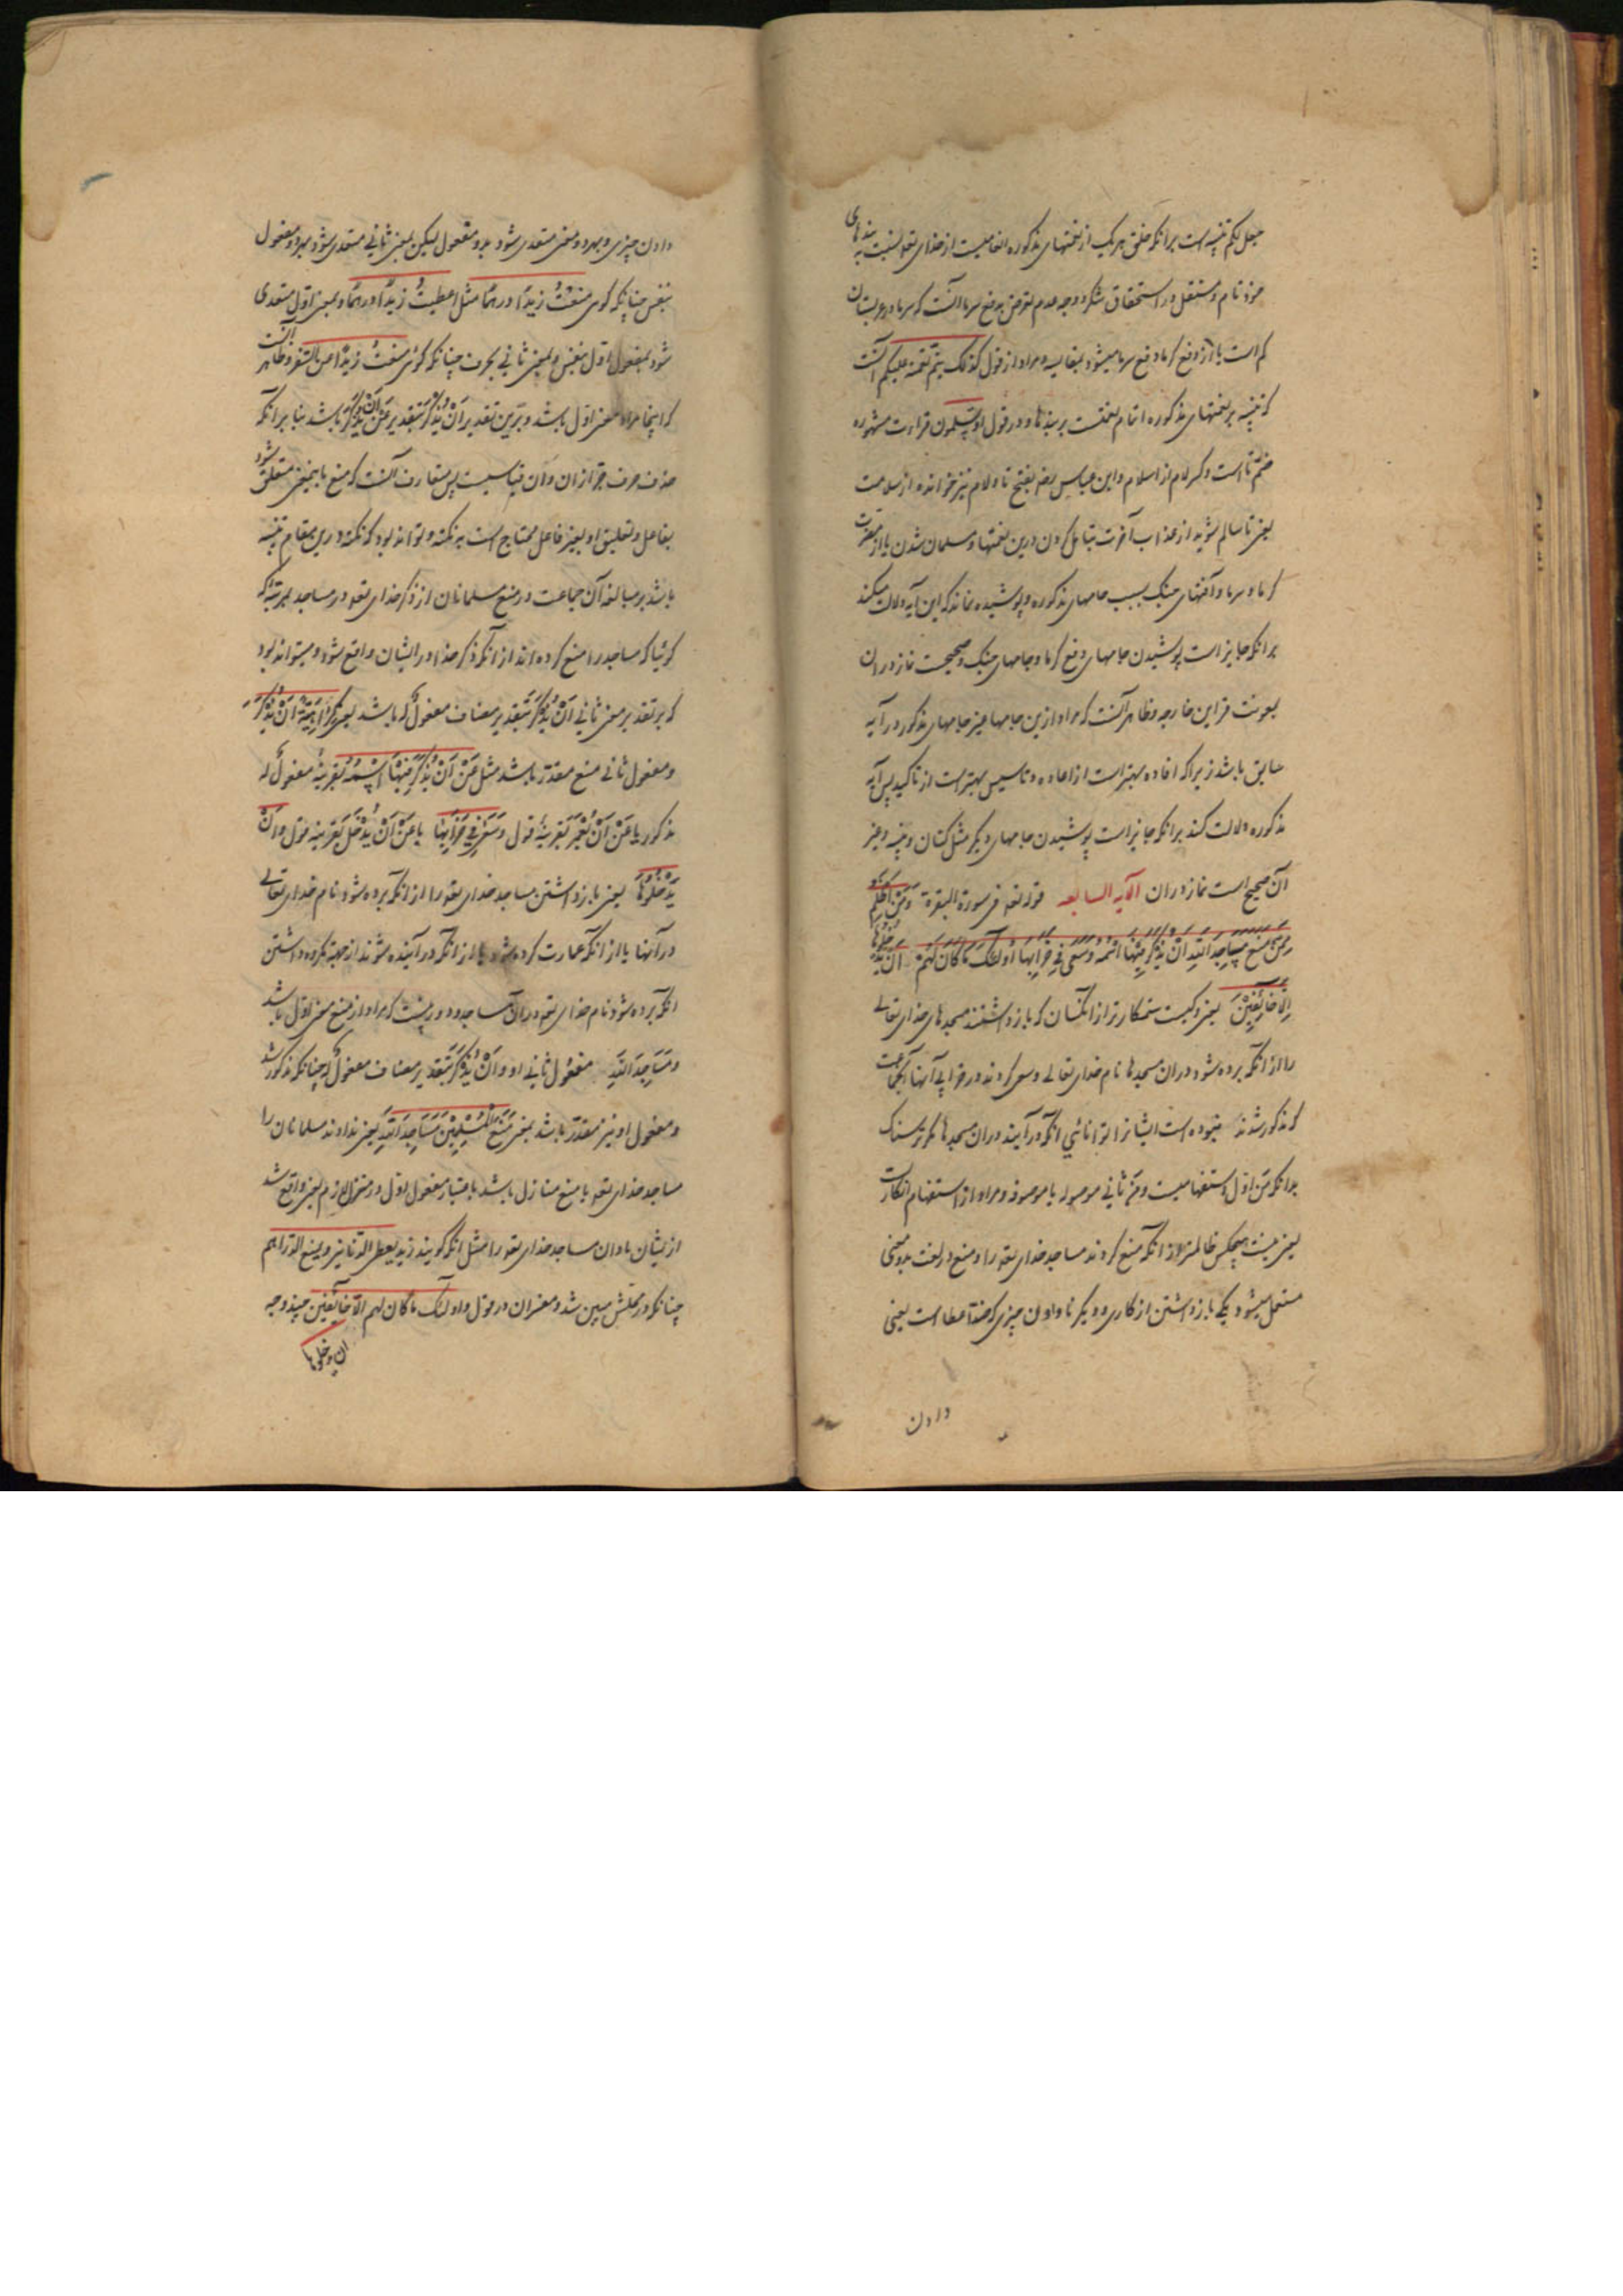 جعل لکم تنبیه است برانکه خلق هر یک از نعمتهای مذکوره انعامیست از خدای تعو لنسبت به بندهای
خود تام و مستقل در استحقاق شکر و وجه عدم تعرض بدفع سرما آنست که سرما در عربستان
کم است یا آنکه از دفع کرما دفع سرما میشود بمقایسه و مراد از قول کذلک یتم نعمته علیکم آنست
که تنبیه بر نعمتهای مذکوره اتمام نعمتست بر بندها و در قول او تسلمون قراءت مشهوره
ضم تا است و کسر لام از اسلام و ابن عباس رضه بفتح تا و لام نیز خوانده از سلامت
یعنی تا سالم شوید از عذاب آخرت بتامل کردن درین نعمتها و مسلمان شدن یا از مضرت
کرما و سرما و آفتهای جنک بسبب جامهای مذکوره و پوشیده نماند که این آیه دلالت میکند
برانکه جایز است پوشیدن جامهای دفع کرما و جامهای جنک و صحیحست نماز دران
بمعونت قراین خارجه و ظاهر آنست که مراد ازین جامها غیر جامهای مذکور در آیه
سابق باشد زیرا که افاده بهتر است از اعاده و تاسیس بهتر است از تاکید پس آیه
مذکوره دلالت کند برانکه جایز است پوشیدن جامهای دیکر مثل کتان و پنبه و غیر
آن صحیح است نماز دران الآیه السابعه قوله تعو فی سورة البقرة وَمَنْ اَظْلَمُ
مِمَّنْ مَنَعَ مَسَاجِدَ اللّٰهِ اَنْ یُذْکَرَ فِیْهَا اسْمُهُ وَسَعٰی فِی خَرَابِهَا اُولٰئِکَ مَا کَانَ لَهُمْ اَنْ یَدْخُلُوهَا
اِلَّا خَائِفِیْنَ یعنی و کیست ستمکارتر از انکسان که باز داشتند مسجدهای خدای تعالی
را از انکه برده شود دران مسجدها نام خدای تعالی و سعی کردند در خرابی آنها آنجماعت
که مذکور شدند نبوده است ایشانرا توانائی انکه درآیند دران مسجدها مکر ترسناک
بدانکه مَن اوّل استفهامیست و مَن ثانی موصوله یا موصوفه و مراد از استفهام انکارست
یعنی نیست هیچکس ظالمتر از انکه منع کردند مساجد خدای تعو را و منع در لغت بدو معنی
مستعمل میشود یکی باز داشتن از کاری و دیکر نادادن چیزی که ضدّ اعطا است یعنی
دادن
دادن چیزی و بهر دو معنی متعدی شود بدو مفعول لیکن بمعنی ثانی متعدی شود بهر دو مفعول
بنفس چنانکه کوی منعتُ زیدًا درهمًا مثل اعطیتُ زیدًا درهمًا و بمعنی اوّل متعدی
شود بمفعول اوّل بنفس و بمعنی ثانی بحرف چنانکه کوئی منعتُ زیدًا عن السّفر و ظاهر آنست
که اینجا مراد معنی اوّل باشد و برین تقدیر اَنْ یُذْکَرَ بتقدیر عَنْ اَنْ یُذْکَرَ باشد بنا برانکه
حذف حرف جرّ از ان و اَنّ قیاسیست پس متعارف آنست که منع باینمعنی متعلّق شود
بفاعل و تعلیق او بغیر فاعل محتاج است به نکته و تواند بود که نکته درین مقام تنبیه
باشد بر مبالغه آن جماعت در منع مسلمانان از ذکر خدای تعو در مساجد بمرتبهٔ که
کوئیا که مساجد را منع کرده اند از آنکه ذکر خدا در ایشان واقع شود و میتواند بود
که بر تقدیر معنی ثانی اَنْ یُذْکَرَ بتقدیر مضاف مفعولٌ له باشد یعنی کَرَاهِیَةَ اَنْ یُذْکَرَ
و مفعول ثانی منع مقدّر باشد مثل عَنْ اَنْ یُذْکَرَ فِیْهَا اسْمُهُ بقرینهٔ مفعولٌ له
مذکور یا عَنْ اَنْ یُعْمَرَ بقرینهٔ قول وَسَعٰی فِی خَرَابِهَا یا عَنْ اَنْ یُدْخَلَ بقرینه قول و اَنْ
یَدْخُلُوهَا یعنی باز داشتن مساجد خدای تعو را از انکه برده شود نام خدای تعالی
در آنها یا از انکه عمارت کرده شود یا از انکه درآینده شوند از جهة مکروه داشتن
انکه برده شود نام خدای تعو دران مساجد و دور نیست که مراد از منع معنی اوّل باشد
و مَسَاجِدَ اللّٰهِ مفعول ثانی او و اَنْ یُذْکَرَ بتقدیر مضاف مفعولٌ له چنانکه مذکور شد
و مفعول او نیز مقدّر باشد یعنی مَنَعَ الْمُسْلِمِیْنَ مَسَاجِدَ اللّٰهِ یعنی ندادند مسلمانان را
مساجد خدای تعو یا منع منازل باشد باعتبار مفعول اوّل در منزل لازم یعنی واقع شد
ازیشان نادان مساجد خدای تعو را مثل انکه کویند زید یعطی الدّنانیر و یمنع الدّراهم
چنانکه در محلّش مبیّن شد و مفسران در قول اولئک ما کان لهم الّا خائفین چند وجه
ان یدخلوها